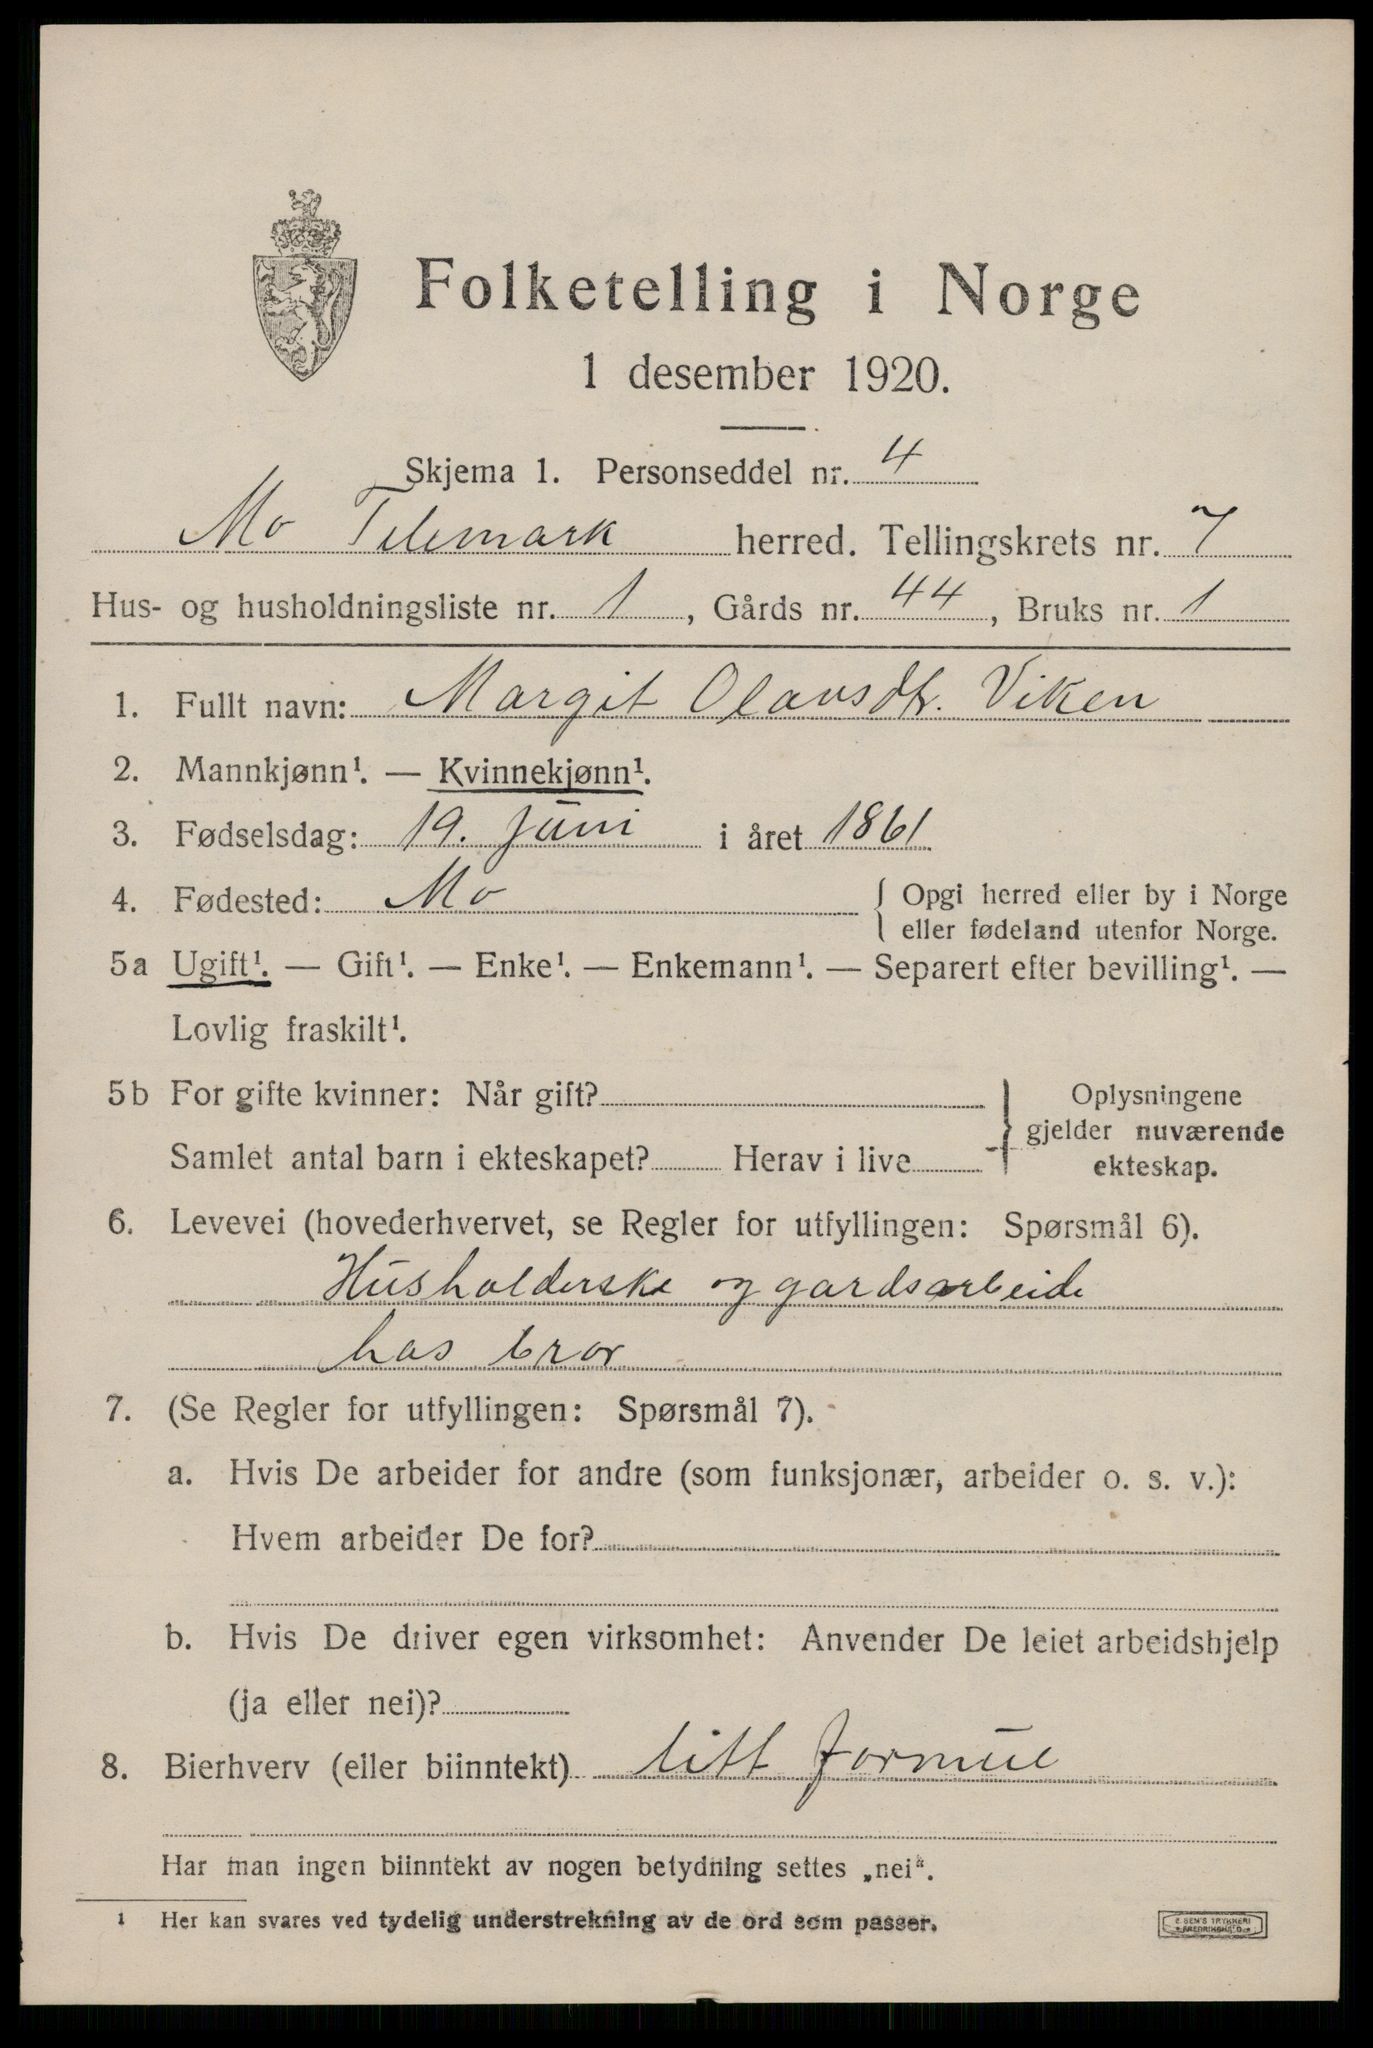 Folketelling i Norge
1 desember 1920.
Skjema 1. Personseddel nr. 4
Mo Telemark herred. Tellingskrets nr. 7
Hus- og husholdningsliste nr. 1, Gårds nr. 44, Bruks nr. 1
1. Fullt navn: Margit Olavsdtr. Viken
2. Mannkjønn¹. — Kvinnekjønn¹.
3. Fødselsdag: 19. Juni i året 1861
4. Fødested: Mo { Opgi herred eller by i Norge
eller fødeland utenfor Norge.
5a Ugift¹. — Gift¹. — Enke¹. — Enkemann¹. — Separert efter bevilling¹. —
Lovlig fraskilt¹.
5b For gifte kvinner: Når gift? } Oplysningene
gjelder nuværende
Samlet antal barn i ekteskapet? Herav i live ekteskap.
6. Levevei (hovederhvervet, se Regler for utfyllingen: Spørsmål 6).
Husholderske og gardsarbeide
hos bror
7. (Se Regler for utfyllingen: Spørsmål 7).
a. Hvis De arbeider for andre (som funksjonær, arbeider o. s. v.):
Hvem arbeider De for?
b. Hvis De driver egen virksomhet: Anvender De leiet arbeidshjelp
(ja eller nei)?
8. Bierhverv (eller biinntekt) litt formue
Har man ingen biinntekt av nogen betydning settes „nei“.
¹ Her kan svares ved tydelig understrekning av de ord som passer.
E SEM'S TRYKKERI
FREDRIKSHALD